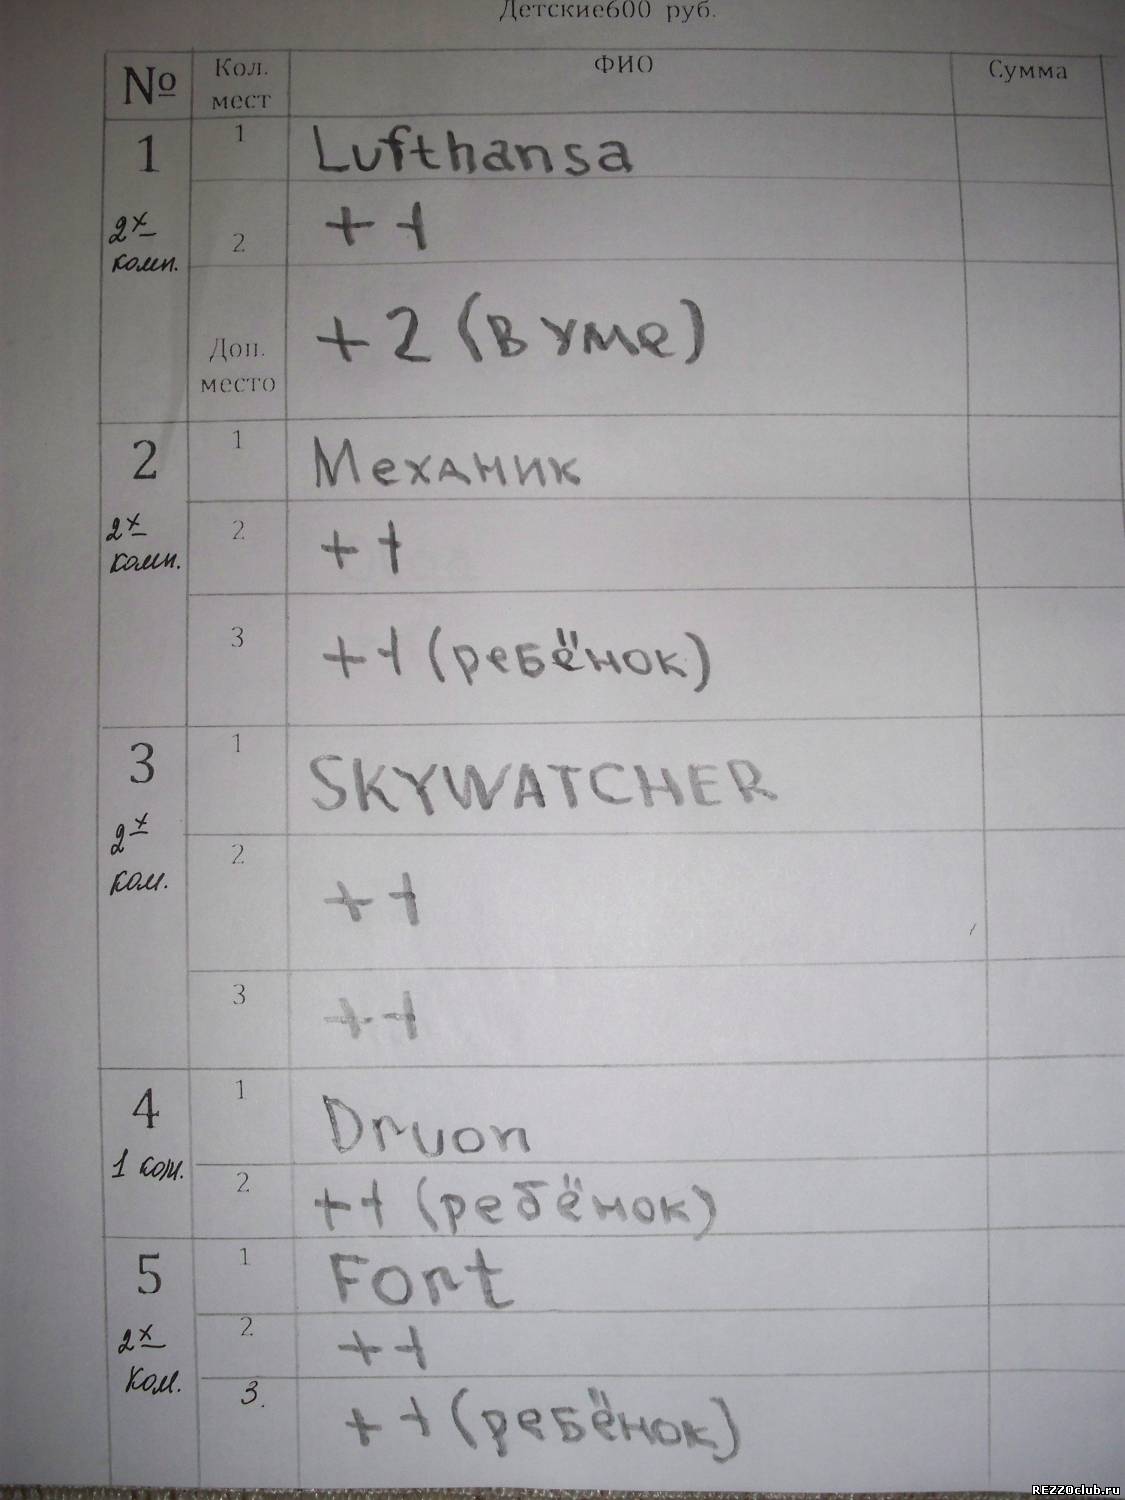 Детские600 руб.
№ Кол. мест ФИО Сумма
1 1 Lufthansa
2х комн. 2 +1
Доп. место +2 (в уме)
2 1 Механик
2х комн. 2 +1
3 +1 (ребёнок)
3 1 SKYWATCHER
2х ком. 2 +1
3 +1
4 1 Druon
1 ком. 2 +1 (ребёнок)
5 1 Fort
2х ком. 2 +1
3. +1 (ребёнок)
REZZOclub.ru